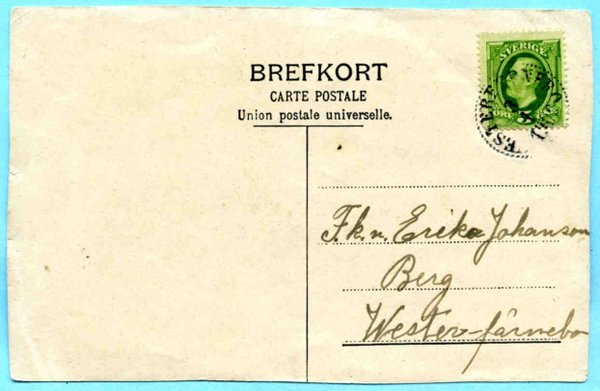 BREFKORT
CARTE POSTALE
Union postale universelle.
SVERIGE
5
Fk.n. Erika Johanson
Berg
Wester-färnebo